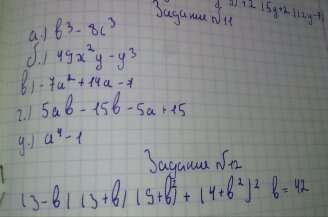 Задание №11
а.) в³ - 8с³
б.) 49x²y - y³
в.) -7a² + 14a - 7
г.) 5ab - 15b - 5a + 15
д.) a⁴ - 1
Задание №12
(3-в) (3+в) (9+в²) + (4+в²)² в = 42